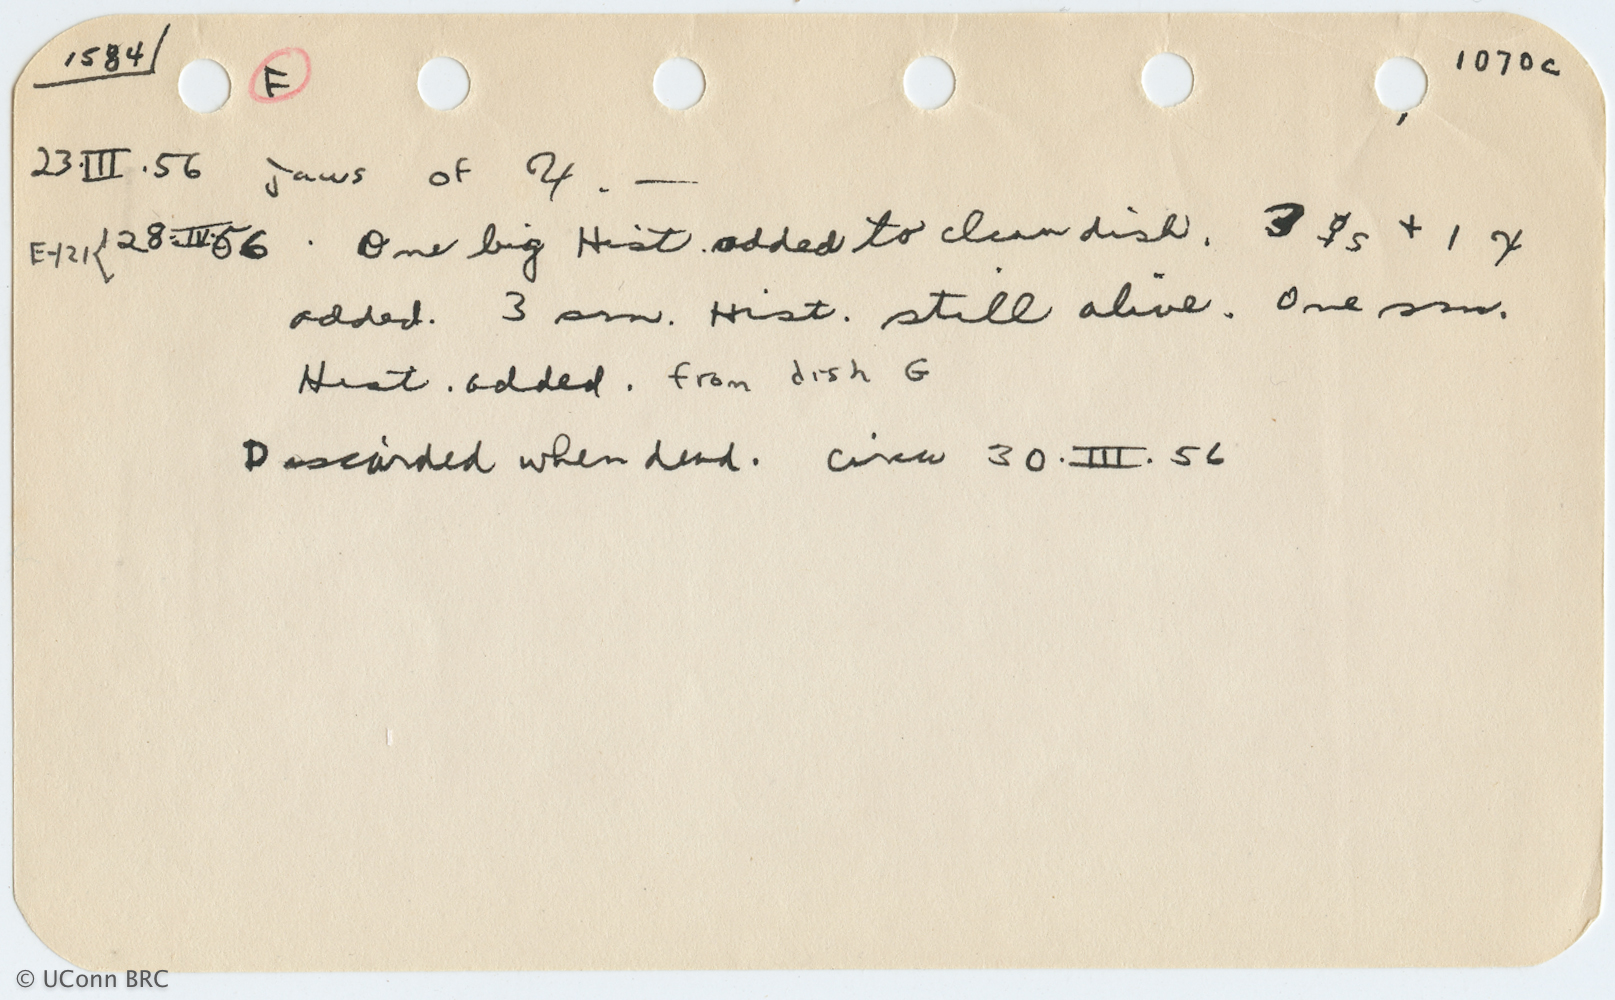 1584
F
1070c
23.III.56 Jaws of ♃. —
E-121 { 28.IV.56. One big Hist. added to clean dish. 3 ☿s + 1 ♃
added. 3 sm. Hist. still alive. One sm.
Hist. added. from dish G
Discarded when dead. circa 30.III.56
© UConn BRC